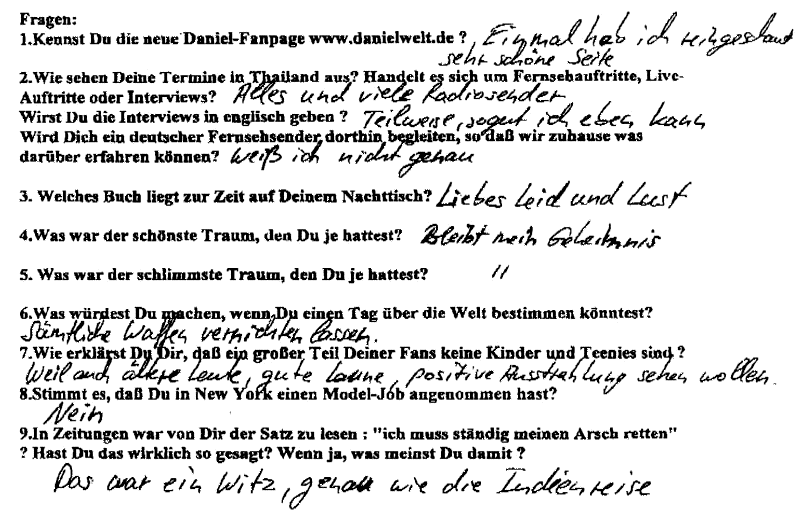 Fragen:
1.Kennst Du die neue Daniel-Fanpage www.danielwelt.de ? Einmal hab ich reingeschaut
sehr schöne Seite
2.Wie sehen Deine Termine in Thailand aus? Handelt es sich um Fernsehauftritte, Live-
Auftritte oder Interviews? Alles und viele Radiosender
Wirst Du die Interviews in englisch geben ? Teilweise, sogut ich eben kann
Wird Dich ein deutscher Fernsehsender dorthin begleiten, so daß wir zuhause was
darüber erfahren können? Weiß ich nicht genau
3. Welches Buch liegt zur Zeit auf Deinem Nachttisch? Liebes Leid und Lust
4.Was war der schönste Traum, den Du je hattest? Bleibt mein Geheimnis
5. Was war der schlimmste Traum, den Du je hattest? "
6.Was würdest Du machen, wenn Du einen Tag über die Welt bestimmen könntest?
Sämtliche Waffen vernichten lassen.
7.Wie erklärst Du Dir, daß ein großer Teil Deiner Fans keine Kinder und Teenies sind ?
Weil auch ältere Leute, gute Laune, positive Ausstrahlung sehen wollen.
8.Stimmt es, daß Du in New York einen Model-Job angenommen hast?
Nein
9.In Zeitungen war von Dir der Satz zu lesen : "ich muss ständig meinen Arsch retten"
? Hast Du das wirklich so gesagt? Wenn ja, was meinst Du damit ?
Das war ein Witz, genau wie die Indienreise